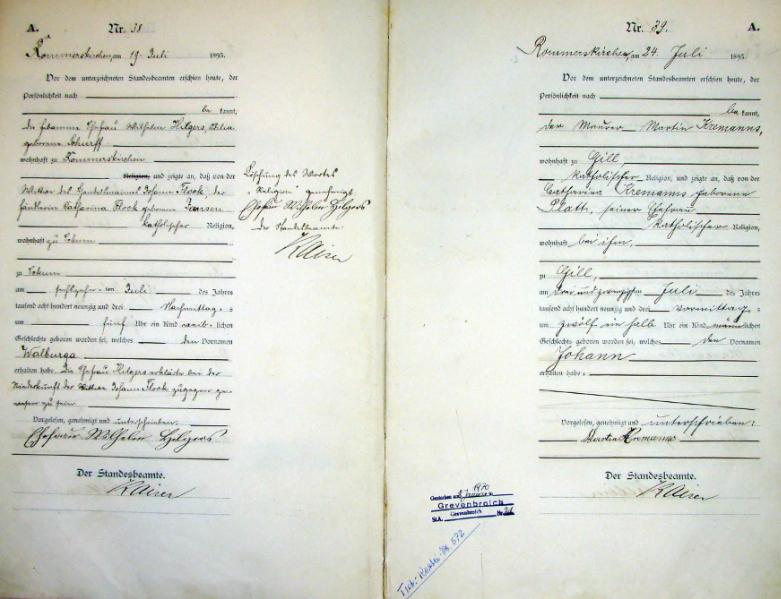 A.
Nr. 38
Rommerskirchen, am 19. Juli 1893.
Vor dem unterzeichneten Standesbeamten erschien heute, der
Persönlichkeit nach
be kannt,
die Hebamme Ehefrau Wilhelm Hilgers,
geborene
wohnhaft zu Rommerskirchen
Religion, und zeigte an, daß von der
Wittwe des Handelsmannes Johann Flock, der
Katharina Flock geborene Jansen
katholischer Religion,
wohnhaft zu
zu
am sechszehnten Juli des Jahres
tausend acht hundert neunzig und drei Nachmittags
um fünf Uhr ein Kind weib- lichen
Geschlechts geboren worden sei, welches den Vornamen
Walburga
erhalten habe. Die Ehefrau Hilgers erklärte bei der
Niederkunft der Wittwe Johann Flock zugegen ge-
wesen zu sein
Vorgelesen, genehmigt und unterschrieben:
Ehefrau Wilhelm Hilgers
Der Standesbeamte.
Kaiser
Löschung des Wortes
"Religion" genehmigt
Ehefrau Wilhelm Hilgers
Der Standesbeamte
Kaiser
Nr. 39.
A.
Rommerskirchen, am 24. Juli 1893
Vor dem unterzeichneten Standesbeamten erschien heute, der
Persönlichkeit nach
be kannt,
der Maurer Martin Kremanns,
wohnhaft zu Gill,
katholischer Religion, und zeigte an, daß von der
Catharina Kremanns geborene
Platt, seiner Ehefrau
katholischer Religion,
wohnhaft bei ihm,
zu Gill,
am drei und zwanzigsten Juli des Jahres
tausend acht hundert neunzig und drei Vormittags
um zwölf ein halb Uhr ein Kind männlichen
Geschlechts geboren worden sei, welches den Vornamen
Johann
erhalten habe.
Vorgelesen, genehmigt und unterschrieben:
Martin Kremanns
Der Standesbeamte.
Kaiser
Gestorben am 1970
Grevenbroich
StA. Grevenbroich Nr.